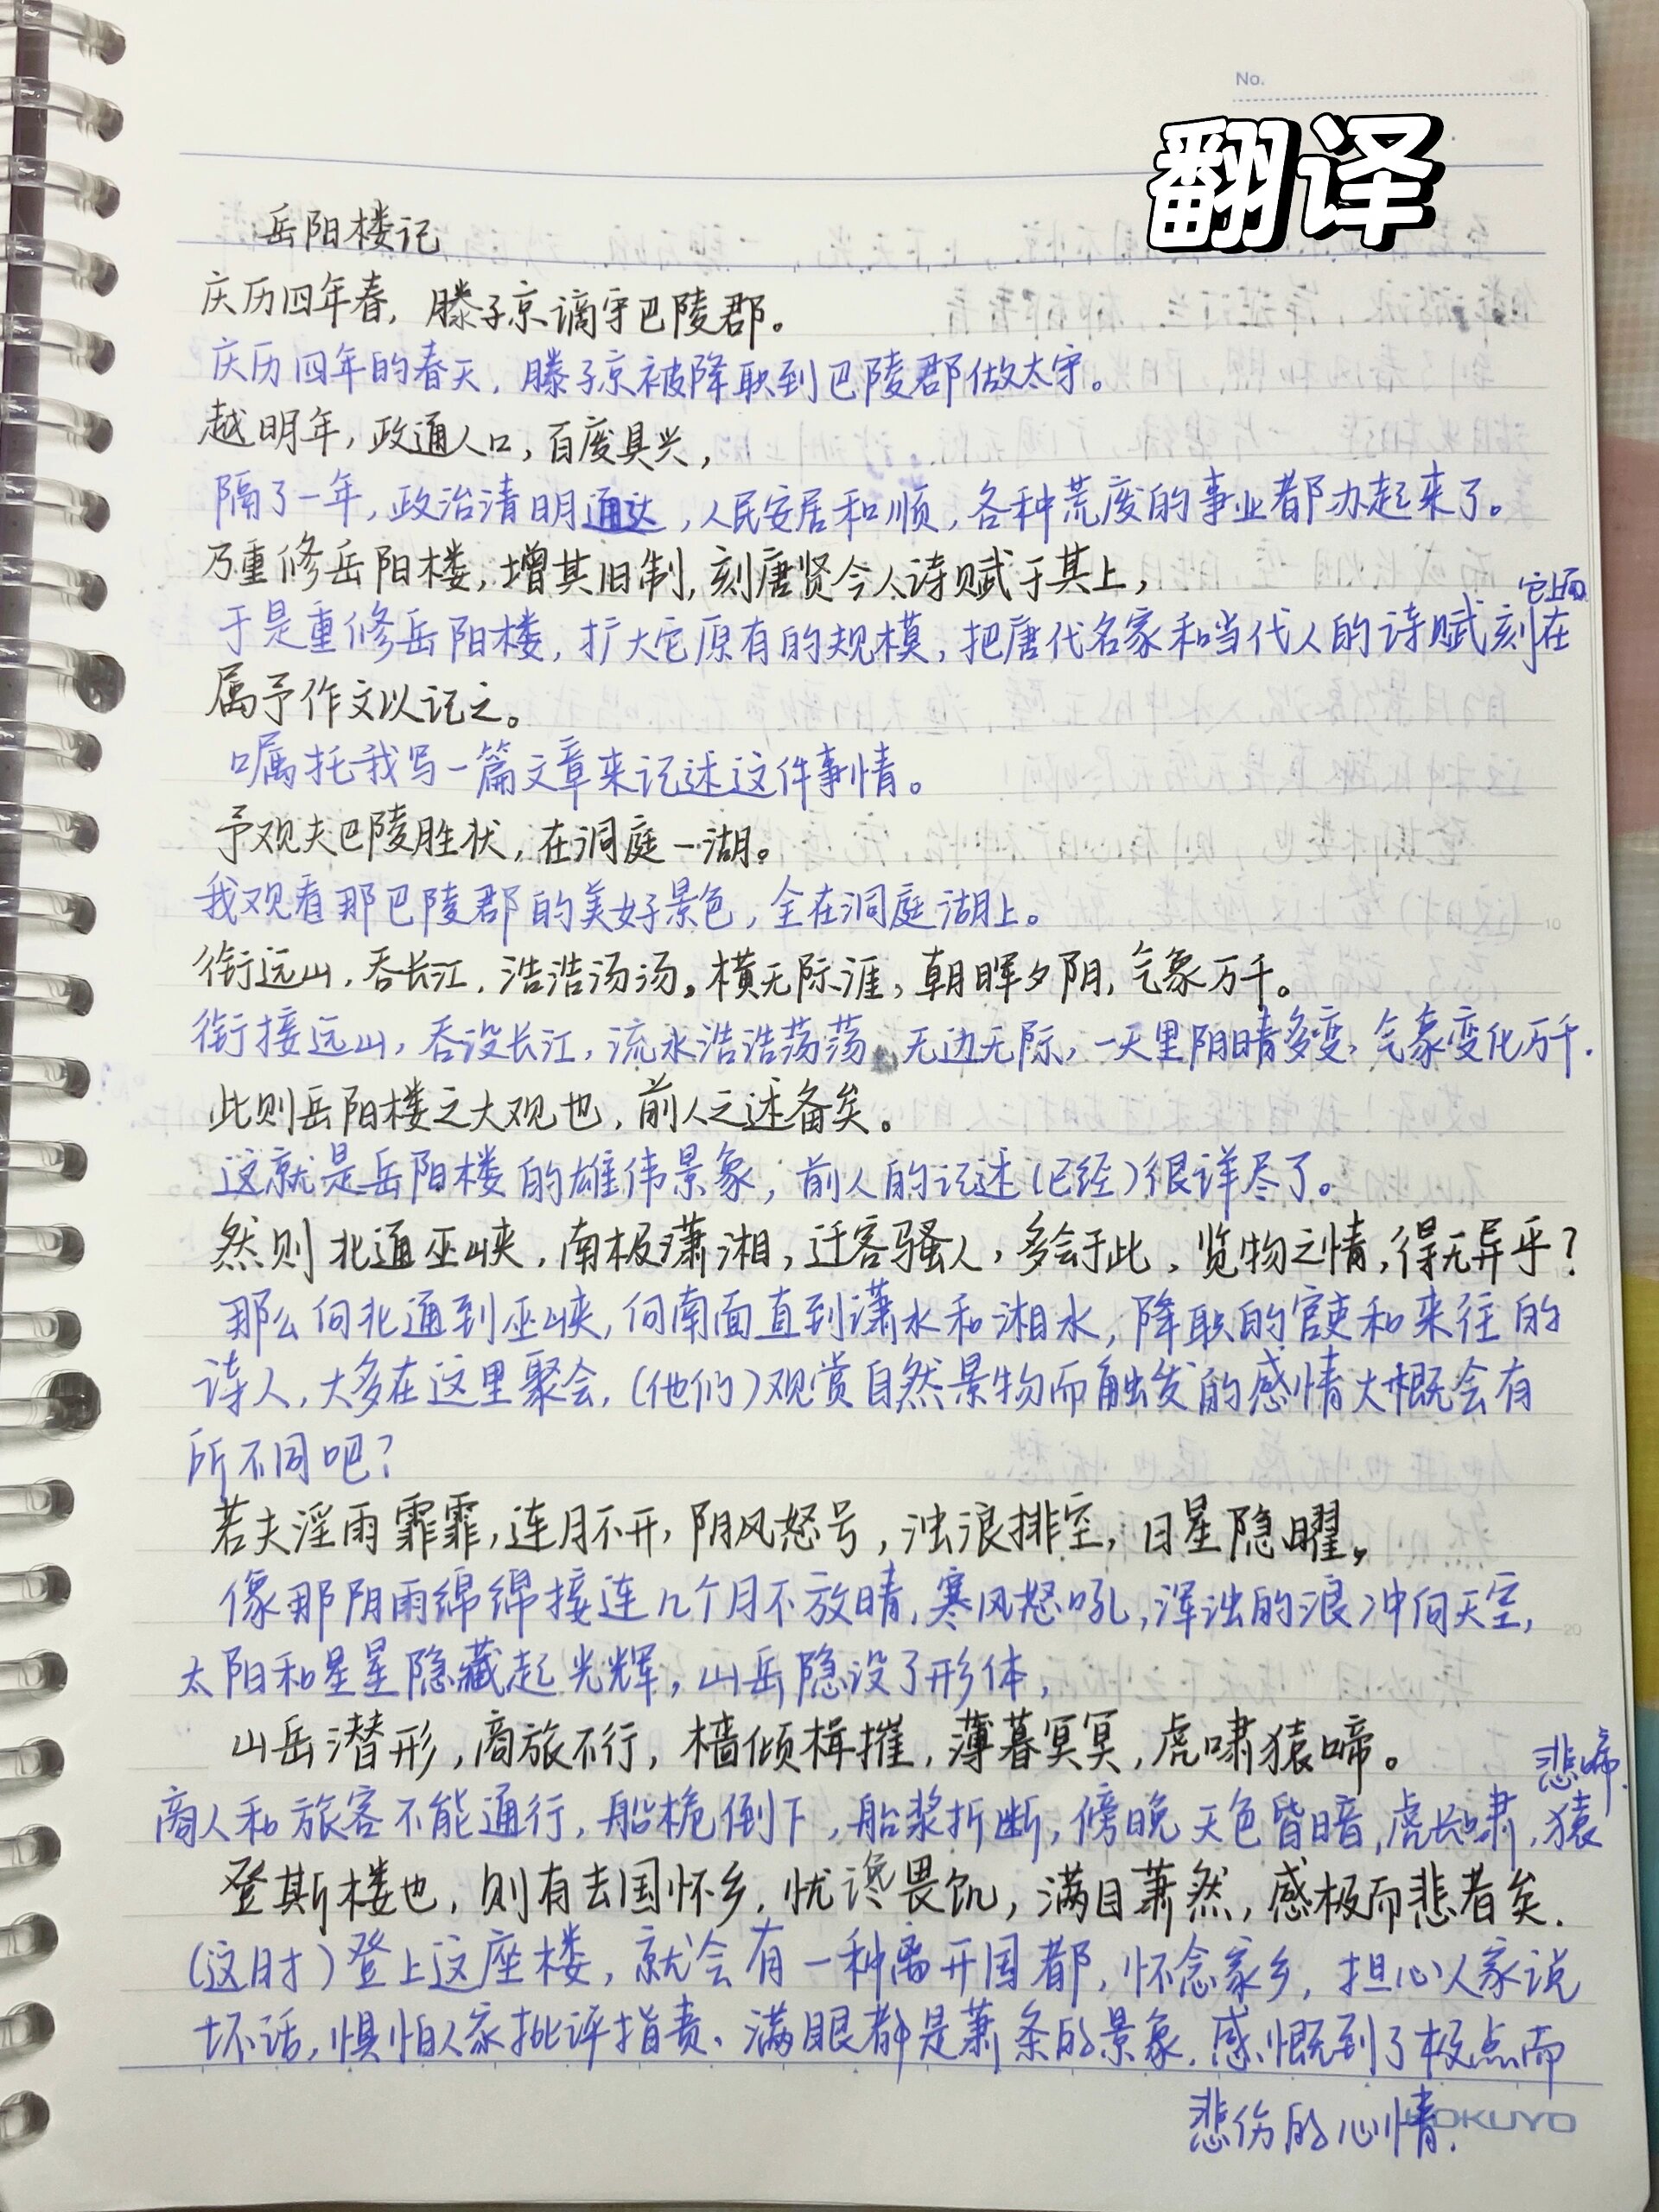 No.
翻译
岳阳楼记
庆历四年春，滕子京谪守巴陵郡。
庆历四年的春天，滕子京被降职到巴陵郡做太守。
越明年，政通人口，百废具兴，
隔了一年，政治清明通达，人民安居和顺，各种荒废的事业都办起来了。
乃重修岳阳楼，增其旧制，刻唐贤今人诗赋于其上，
于是重修岳阳楼，扩大它原有的规模，把唐代名家和当代人的诗赋刻在
它上面
属予作文以记之。
嘱托我写一篇文章来记述这件事情。
予观夫巴陵胜状，在洞庭一湖。
我观看那巴陵郡的美好景色，全在洞庭湖上。
衔远山，吞长江，浩浩汤汤，横无际涯，朝晖夕阴，气象万千。
衔接远山，吞没长江，流水浩浩荡荡 无边无际，一天里阴晴多变，气象变化万千.
此则岳阳楼之大观也，前人之述备矣。
这就是岳阳楼的雄伟景象，前人的记述(已经)很详尽了。
然则北通巫峡，南极潇湘，迁客骚人，多会于此，览物之情，得无异乎？
那么向北通到巫峡，向南面直到潇水和湘水，降职的官吏和来往的
诗人，大多在这里聚会，(他们)观赏自然景物而触发的感情大概会有
所不同吧？
若夫淫雨霏霏，连月不开，阴风怒号，浊浪排空，日星隐曜，
像那阴雨绵绵接连几个月不放晴，寒风怒吼，浑浊的浪冲向天空，
太阳和星星隐藏起光辉，山岳隐没了形体，
山岳潜形，商旅不行，樯倾楫摧，薄暮冥冥，虎啸猿啼。
商人和旅客不能通行，船桅倒下，船桨折断，傍晚天色昏暗，虎长啸，猿
悲啼.
登斯楼也，则有去国怀乡，忧谗畏讥，满目萧然，感极而悲者矣.
(这时)登上这座楼，就会有一种离开国都，怀念家乡，担心人家说
坏话，惧怕人家批评指责、满眼都是萧条的景象，感慨到了极点而
悲伤的心情.
KOKUYO